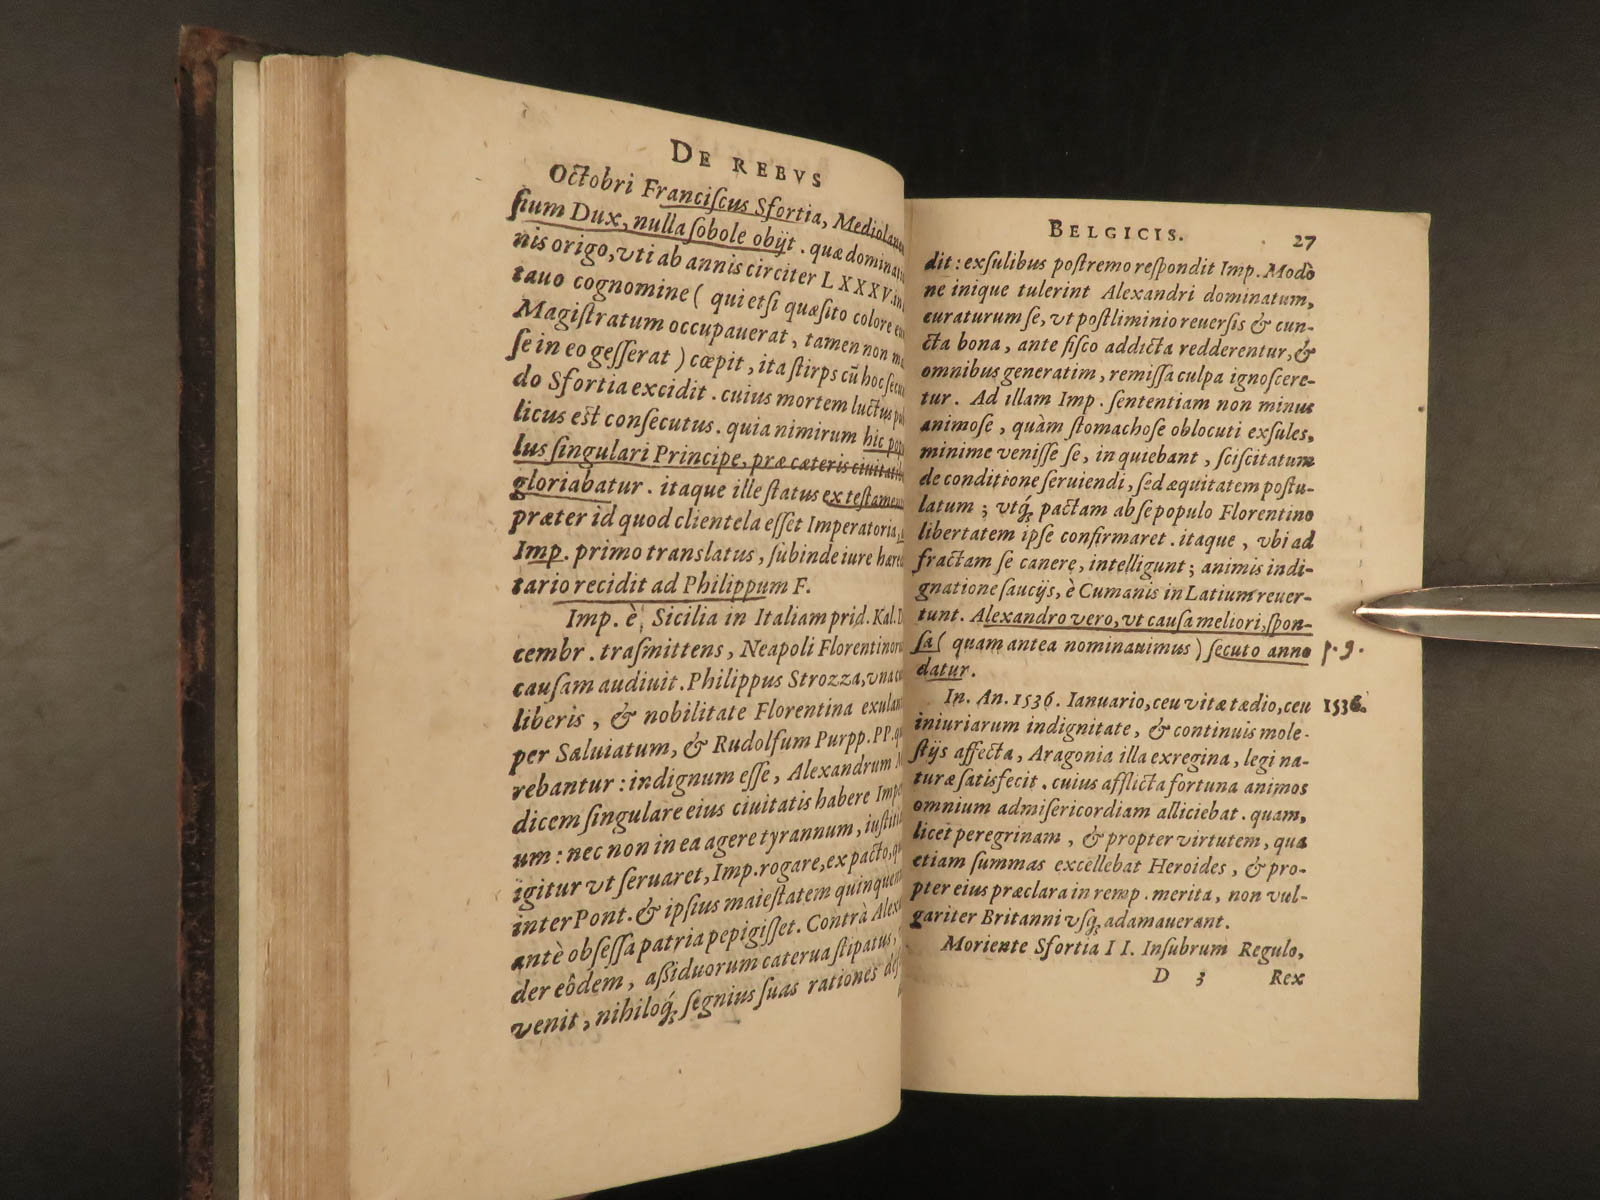 DE REBVS
Octobri Franciſcus Sfortia, Mediolanen
ſium Dux, nulla ſobole obijt. quæ dominat
nis origo, vti ab annis circiter LXXXV. in
tauo cognomine ( qui etſi quæſito colore eu
Magiſtratum occupauerat, tamen non ma
ſe in eo geſſerat ) cœpit, ita ſtirps cū hoc ſecu
do Sfortia excidit. cuius mortem luctus pub
licus est conſecutus. quia nimirum hic popu
lus ſingulari Principe, præ cæteris ciuitatib
gloriabatur. itaque ille ſtatus ex teſtament
præter id quod clientela eſſet Imperatoria,
Imp. primo translatus, ſubinde iure hæred
tario recidit ad Philippum F.
Imp. è Sicilia in Italiam prid. Kal. D
cembr. traſmittens, Neapoli Florentinoru
cauſam audiuit. Philippus Strozza, vna cu
liberis, & nobilitate Florentina exulant
per Saluiatum, & Rudolfum Purpp. PP. qu
rebantur: indignum eſſe, Alexandrum M
dicem ſingulare eius ciuitatis habere Impe
um: nec non in ea agere tyrannum, iuſtiti
igitur vt ſeruaret, Imp. rogare, ex pacto, qu
inter Pont. & ipſius maieſtatem quinquenn
antè obſeſſa patria pepigiſſet. Contrà Alexa
der eôdem, aßiduorum caterua ſtipatus,
venit, nihiloq́; ſegnius ſuas rationes def
BELGICIS. 27
dit: exſulibus poſtremo reſpondit Imp. Modò
ne inique tulerint Alexandri dominatum,
curaturum ſe, vt poſtliminio reuerſis & cun-
cta bona, ante fiſco addicta redderentur, &
omnibus generatim, remiſſa culpa ignoſcere-
tur. Ad illam Imp. ſententiam non minus
animoſe, quàm ſtomachoſe oblocuti exſules,
minime veniſſe ſe, inquiebant, ſciſcitatum
de conditione ſeruiendi, ſed æquitatem poſtu-
latum; vtq́; pactam ab ſe populo Florentino
libertatem ipſe confirmaret. itaque, vbi ad
fractam ſe canere, intelligunt; animis indi-
gnatione ſaucijs, è Cumanis in Latium reuer-
tunt. Alexandro vero, vt cauſa meliori, ſpon-
ſa ( quam antea nominauimus ) ſecuto anno p. 9.
datur.
In. An. 1536. Ianuario, ceu vitæ tædio, ceu 1536.
iniuriarum indignitate, & continuis mole-
ſtijs affecta, Aragonia illa exregina, legi na-
turæ ſatisfecit. cuius afflicta fortuna animos
omnium ad miſericordiam alliciebat. quam,
licet peregrinam, & propter virtutem, qua
etiam ſummas excellebat Heroides, & pro-
pter eius præclara in remp. merita, non vul-
gariter Britanni vſq; adamauerant.
Moriente Sfortia II. Inſubrum Regulo,
D 3 Rex